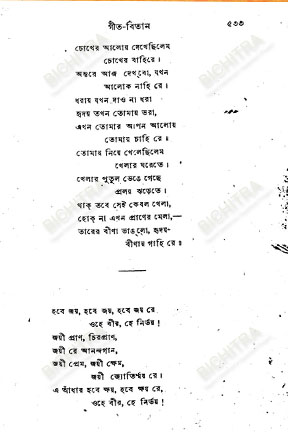 গীত-বিতান
৫৩৩
চোখের আলোয় দেখেছিলেম
চোখের বাহিরে।
অন্তরে আজ দেখ্‌বো, যখন
আলোক নাহি রে।
ধরায় যখন দাও না ধরা
হৃদয় তখন তোমায় ভরা,
এখন তোমার আপন আলোয়
তোমায় চাহি রে॥
তোমায় নিয়ে খেলেছিলেম
খেলার ঘরেতে।
খেলার পুতুল ভেঙে গেছে
প্রলয় ঝড়েতে।
থাক্ তবে সেই কেবল খেলা,
হোক্ না এখন প্রাণের মেলা,—
তারের বীণা ভাঙ্‌লো, হৃদয়-
বীণায় গাহি রে॥
হবে জয়, হবে জয়, হবে জয় রে
ওহে বীর, হে নির্ভয়!
জয়ী প্রাণ, চিরপ্রাণ,
জয়ী রে আনন্দগান,
জয়ী প্রেম, জয়ী ক্ষেম,
জয়ী জ্যোতির্ম্ময় রে।
এ আঁধার হবে ক্ষয়, হবে ক্ষয় রে,
ওহে বীর, হে নির্ভয়!
BICHITRA